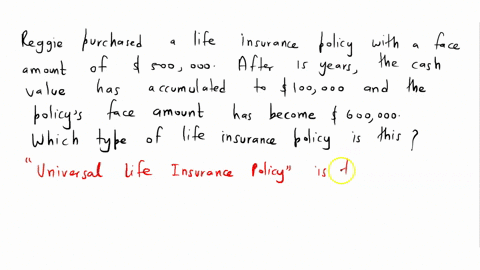 Reggie purchased a life insurance policy with a face
amount of $ 500,000. After 15 years, the cash
value has accumulated to $100,000 and the
policy's face amount has become $ 600,000.
Which type of life insurance policy is this?
"Universal Life Insurance Policy" is